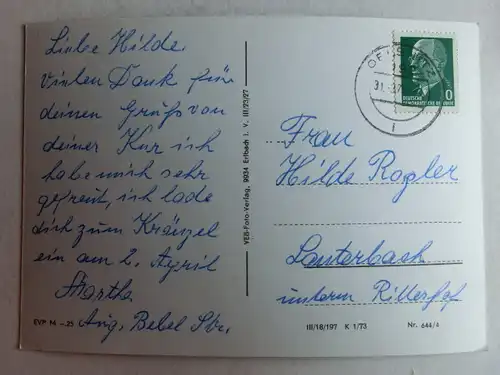 Liebe Hilde
vielen Dank für
deinen Gruß von
deiner Kur ich
habe mich sehr
gefreut, ich lade
dich zum Kränzel
ein am 2. April
Martha
Aug. Bebel Str.
EVP M -.25
VEB-Foto-Verlag, 9934 Erlbach i. V. III/23/27
31.
DEUTSCHE
DEMOKRATISCHE REPUBLIK
Frau
Hilde Rogler
Lauterbach
unterm Ritterhof
III/18/197 K 1/73
Nr. 644/4